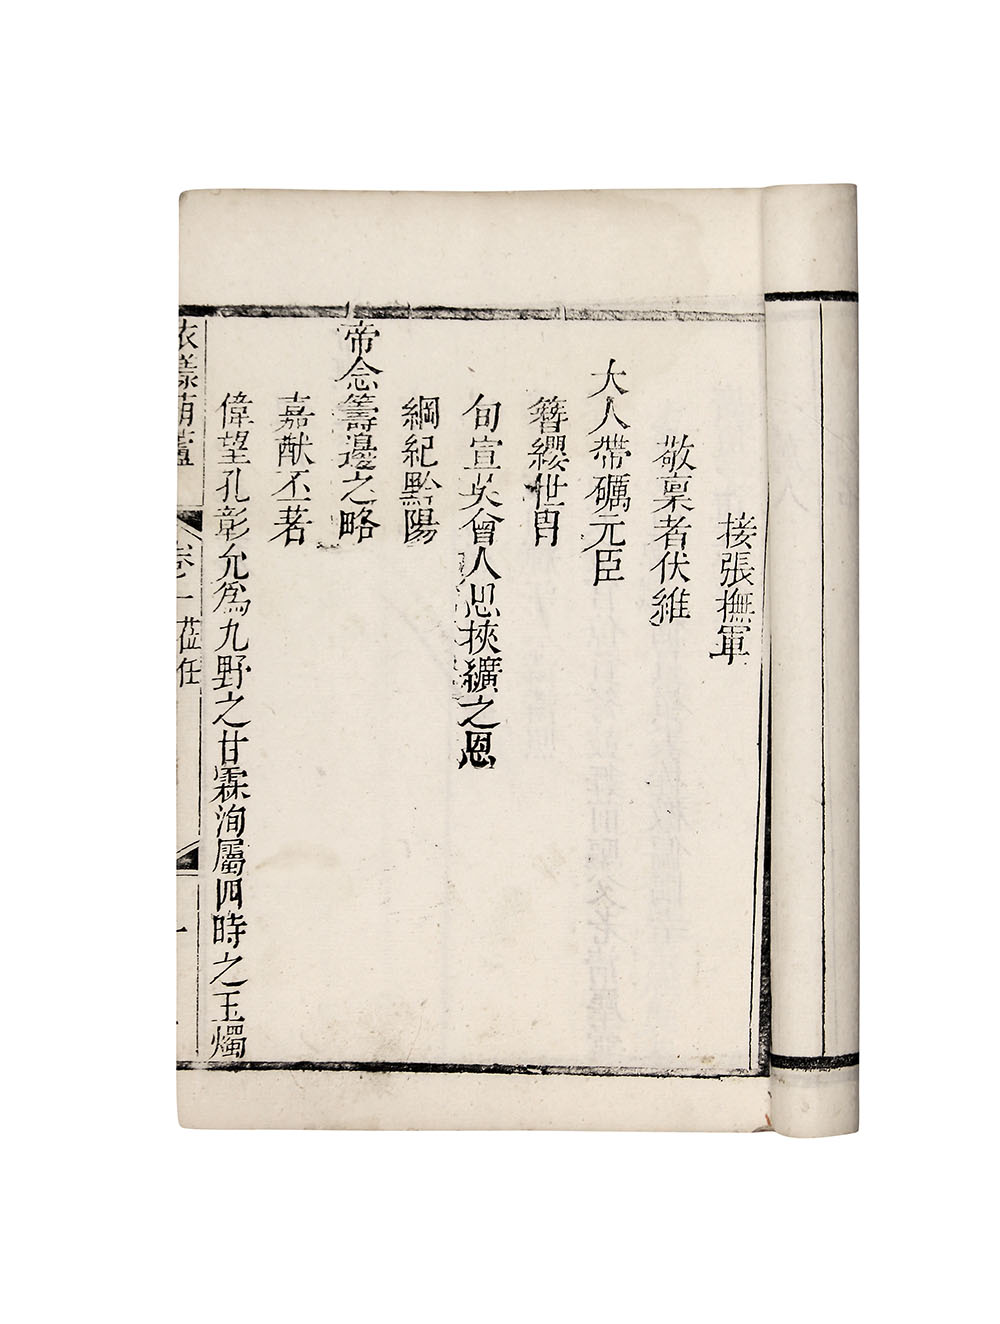 接張撫軍
敬稟者伏維
大人帶礪元臣
簪纓世胄
旬宣英會人思挾纊之恩
綱紀黔陽
帝念籌邊之略
嘉猷丕著
偉望孔彰允爲九野之甘霖洵屬四時之玉燭
依樣葫蘆
卷一 蒞任
一